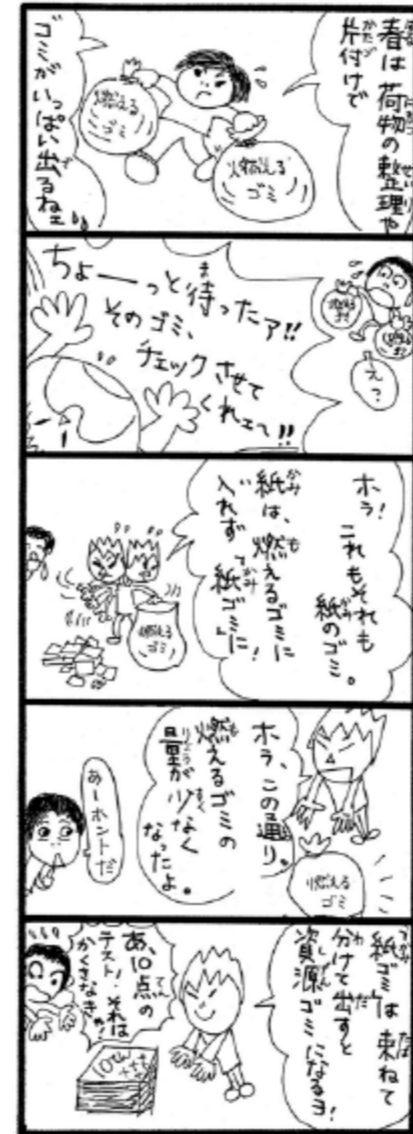 春は荷物の整理や
片付けで
ゴミが
いっぱい出るねェ。
燃える
ゴミ
燃える
ゴミ
ちょーーっと待ったァ!!
そのゴミ、
チェックさせて
くれェ〜!!
えっ?
ホラ!
これもそれも
紙のゴミ。
紙は、燃えるゴミに
入れず「紙ゴミ」に!
燃える
ゴミ
ホラ、この通り。
燃えるゴミの
量が少なく
なったよ。
燃える
ゴミ
あーホントだ
「紙ゴミ」は束ねて
分けて出すと
資源ゴミになるヨ!
あ、10点の
テスト!それは
かくさなきゃ!